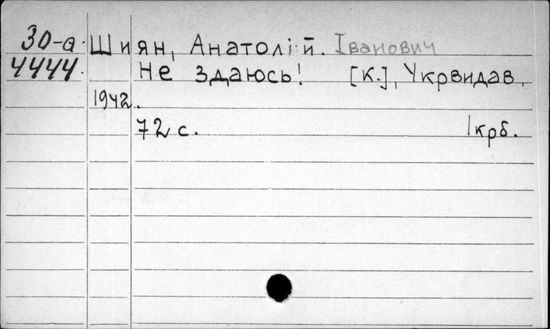 30-а Шиян, Анатолій. Іванович
4444. Не здаюсь! [К.], Укрвидав,
1942.
72 с. 1 крб.